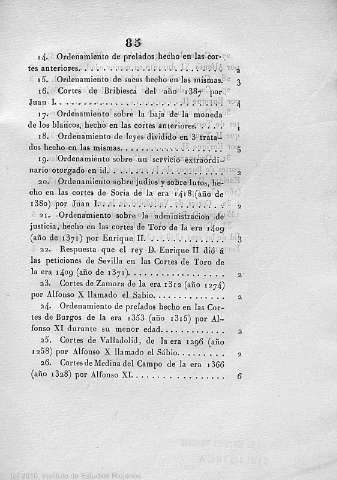 85
14. Ordenamiento de prelados hecho en las cor-
tes anteriores. 2
15. Ordenamiento de sacas hecho en las mismas. 3
16. Cortes de Bribiesca del año 1387 por
Juan I. 4
17. Ordenamiento sobre la baja de la moneda
de los blancos, hecho en las cortes anteriores. 1
18. Ordenamiento de leyes dividido en 3 trata-
dos hecho en las mismas. 5
19. Ordenamiento sobre un servicio extraordi-
nario otorgado en id. 2
20. Ordenamiento sobre judíos y sobre lutos, he-
cho en las cortes de Soria de la era 1418 (año de
1380) por Juan I. 2
21. Ordenamiento sobre la administracion de
justicia, hecho en las cortes de Toro de la era 1409
(año de 1371) por Enrique II. 3
22. Respuesta que el rey D. Enrique II dió á
las peticiones de Sevilla en las Cortes de Toro de
la era 1409 (año de 1371). 2
23. Cortes de Zamora de la era 1312 (año 1274)
por Alfonso X llamado el Sabio. 2
24. Ordenamiento de prelados hecho en las Cor-
tes de Burgos de la era 1353 (año 1315) por Al-
fonso XI durante su menor edad. 2
25. Cortes de Valladolid, de la era 1296 (año
1258) por Alfonso X llamado el Sábio. 2
26. Cortes de Medina del Campo de la era 1366
(año 1328) por Alfonso XI. 6
(c) 2010, Instituto de Estudios Riojanos